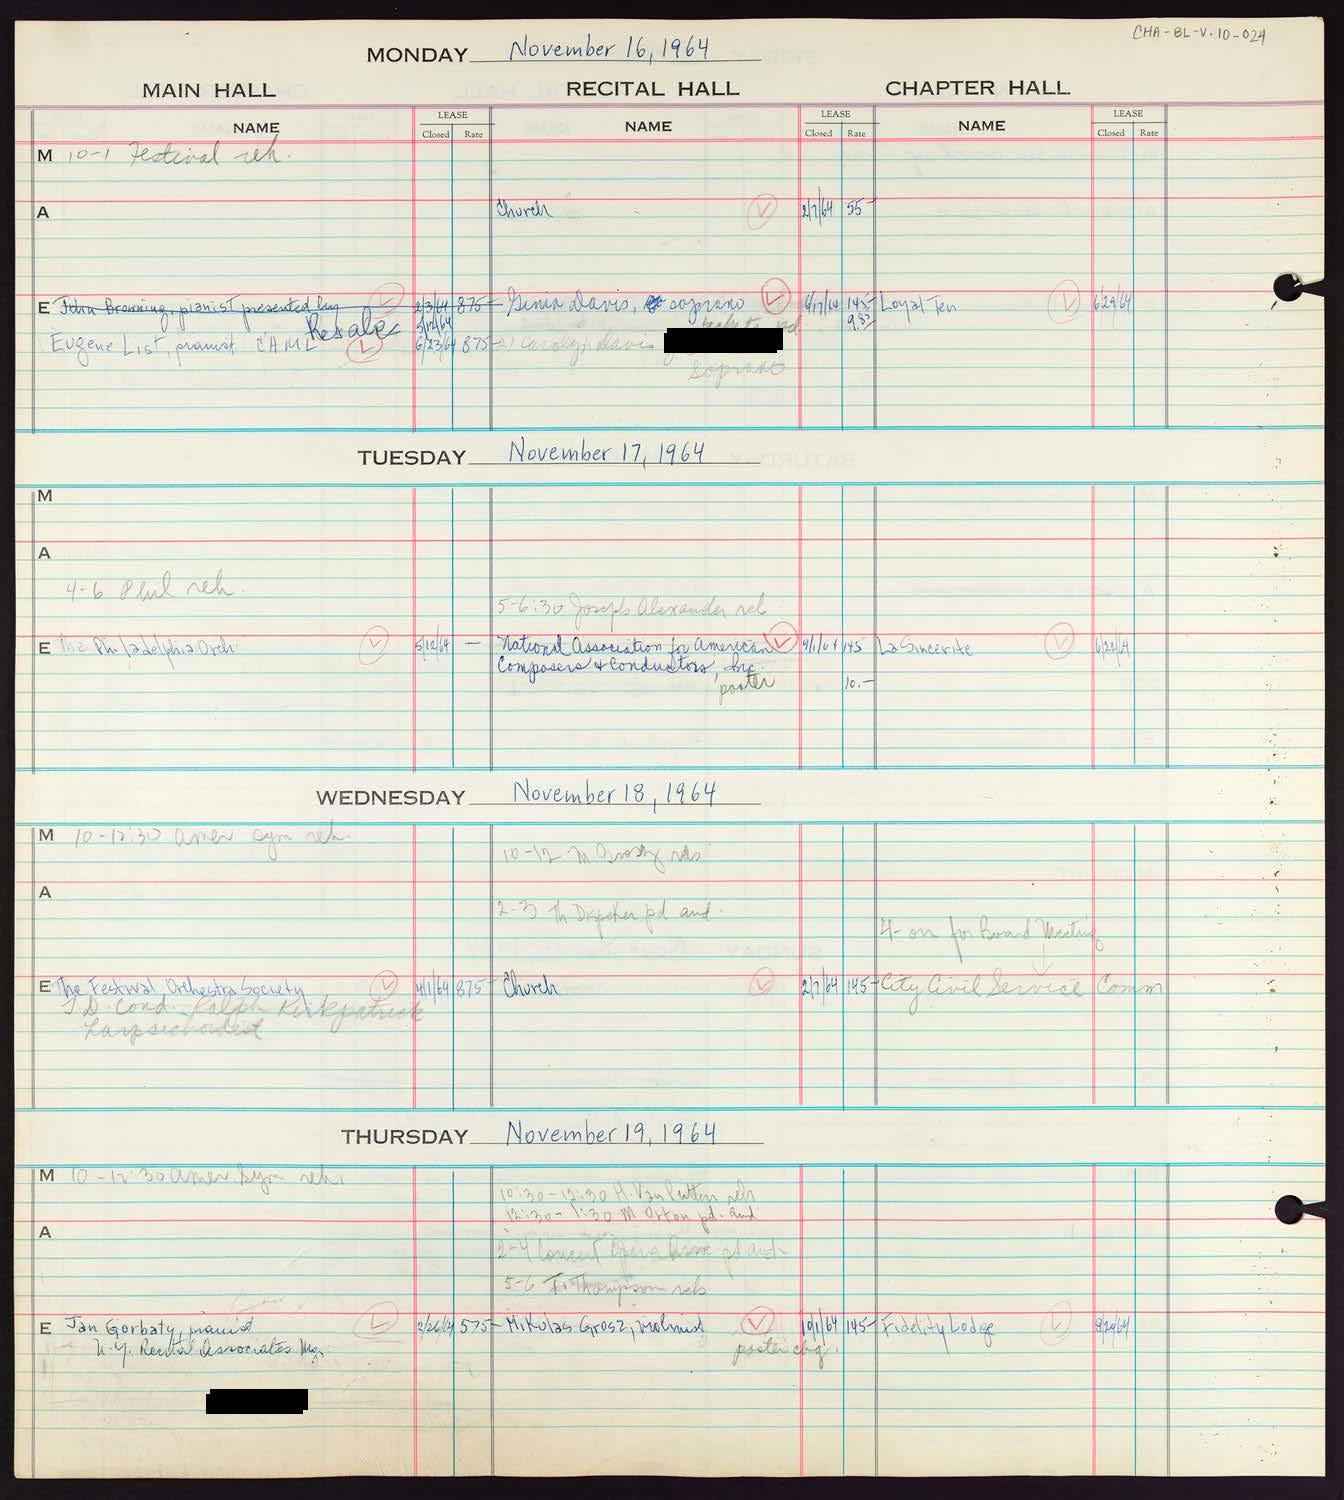 CHA-BL-V.10-024
MONDAY November 16, 1964
MAIN HALL RECITAL HALL CHAPTER HALL
NAME LEASE Closed Rate NAME LEASE Closed Rate NAME LEASE Closed Rate
M 10-1 Festival reh.
A Church 2/7/64 55-
E John Browning, pianist presented by 2/3/64 875- Ginia Davis, soprano 6/17/64 145- Loyal Ten 6/29/64
Resale 5/12/64 9.82
Eugene List, pianist CAML 6/23/64 875- Carolyn Davis
soprano
TUESDAY November 17, 1964
M
A
4-6 Phil reh.
5-6:30 Joseph Alexander reh
E The Philadelphia Orch 5/12/64 — National Association for American 9/1/64 145 La Sincerite 6/29/64
Composers & Conductors, Inc.
poster 10.-
WEDNESDAY November 18, 1964
M 10-12:30 Amer Sym reh.
10-12 M
A
2-3 pd aud.
4- on for Board Meeting
E The Festival Orchestra Society 4/1/64 875- Church 2/7/64 145- City Civil Service Comm
T.D. Cond. Ralph Kirkpatrick
harpsichordist
THURSDAY November 19, 1964
M 10-12:30 Amer. Sym reh.
10:30-12:30 H. Van Putten reh
12:30-1:30 M Orton pd. aud
A
2-4 Concert Opera Assoc pd aud
5-6 Thompson reh
E Jan Gorbaty, pianist 2/26/64 575- Mikulas Grosz, violinist 10/1/64 145- Fidelity Lodge 9/20/64
N.Y. Recital Associates Mg. poster chg.